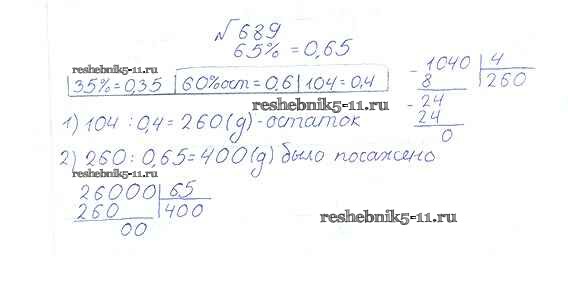 №689
65% = 0,65
reshebnik5-11.ru
35%=0,35 60%ост=0,6 104=0,4
reshebnik5-11.ru
1) 104 : 0,4 = 260 (д) - остаток
2) 260 : 0,65 = 400 (д) было посажено
26000 65
260 400
00
- 1040 4
8 260
- 24
24
0
reshebnik5-11.ru